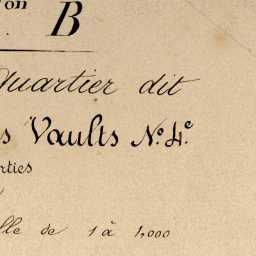 on B
Quartier dit
s Vaults N.º 4.e
rties
lle de 1 à 1,000